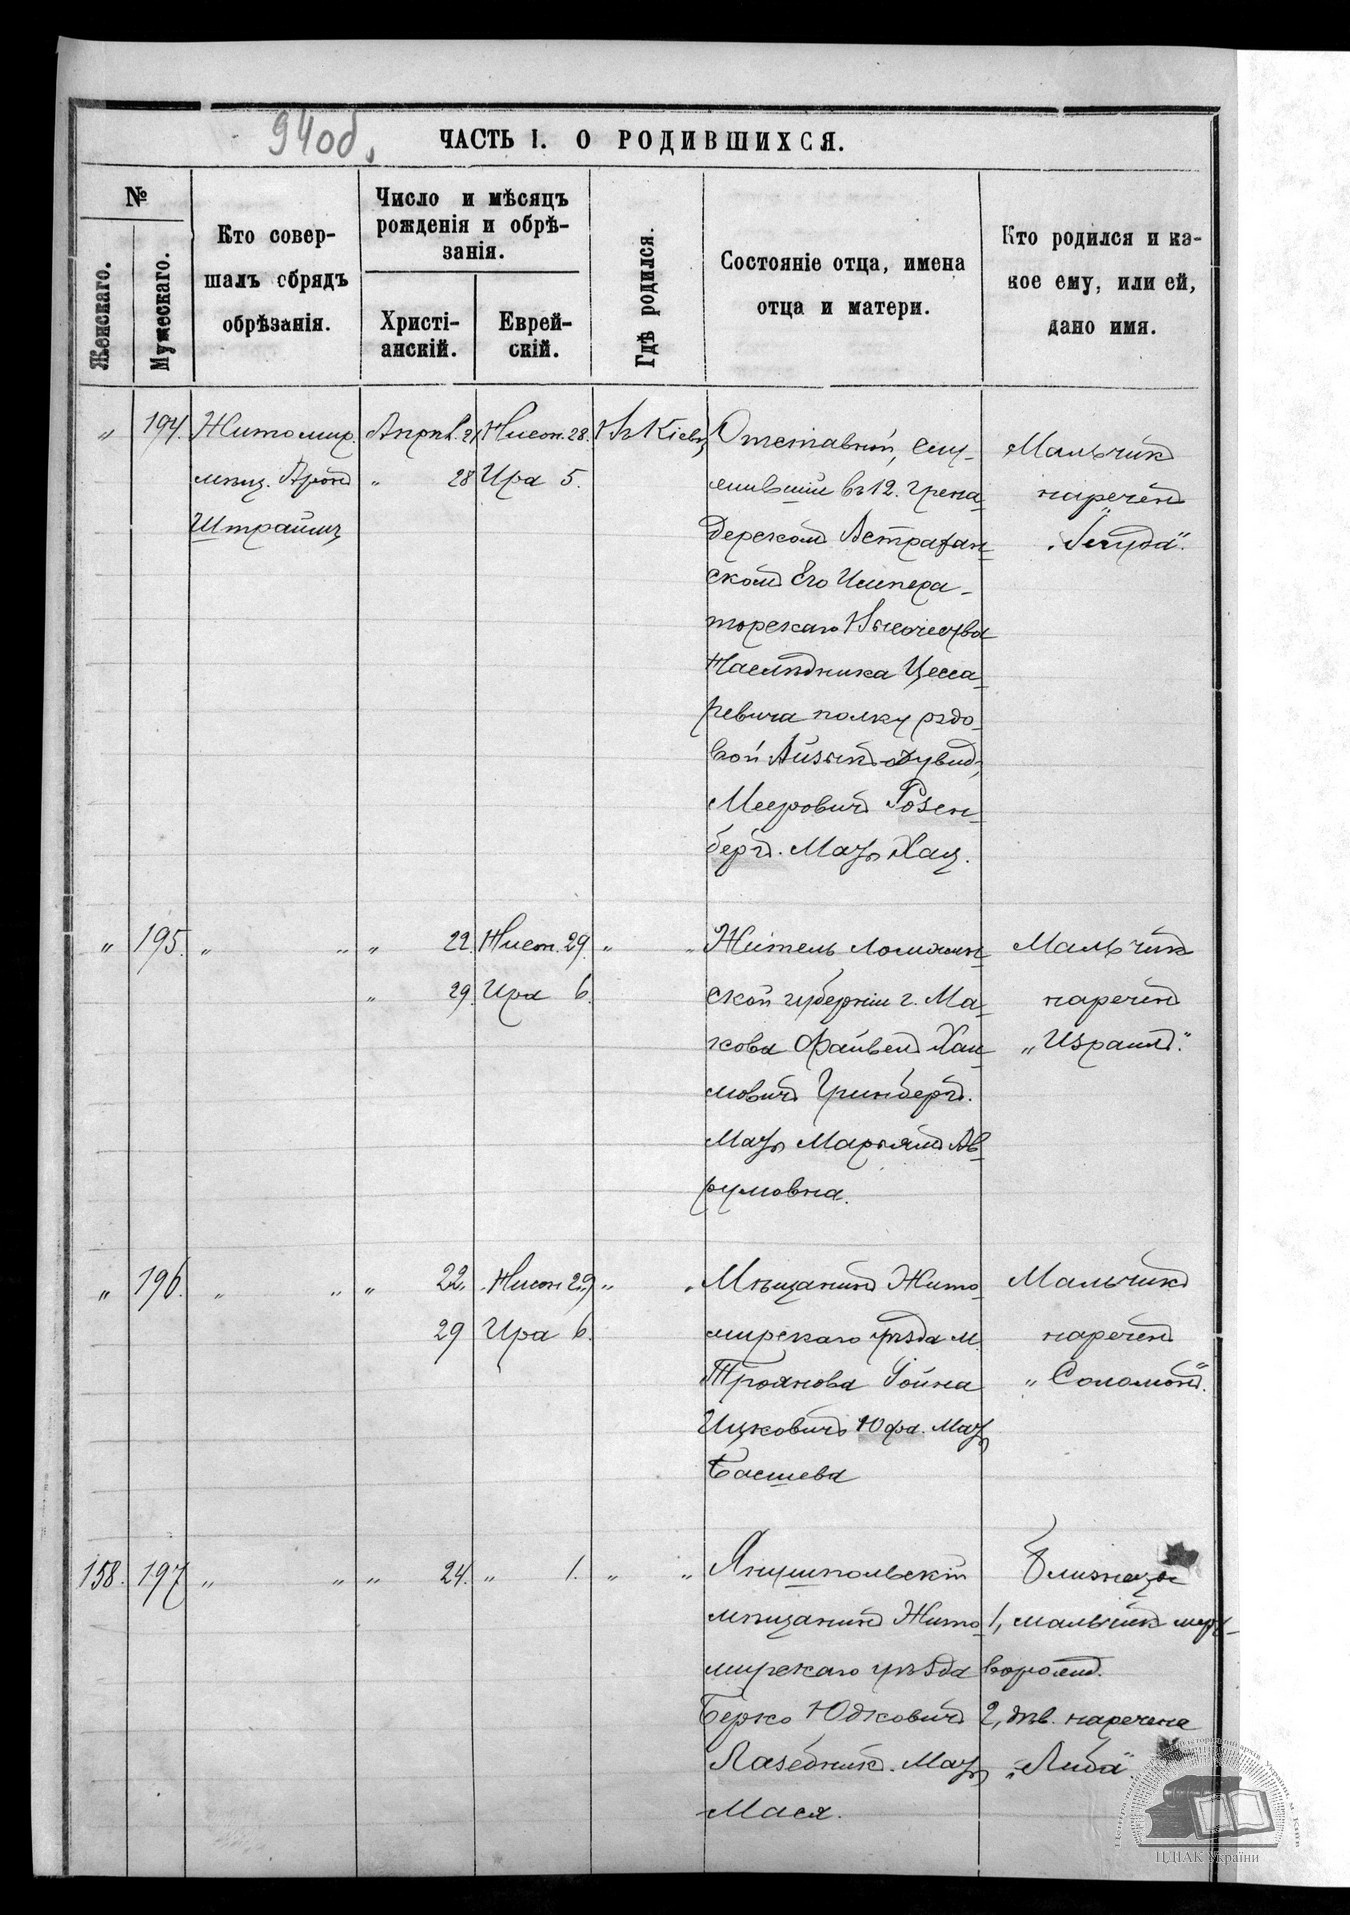 94об.
ЧАСТЬ I. О РОДИВШИХСЯ.
№
Женскаго.
Мужескаго.
Кто совер-
шалъ обрядъ
обрѣзанія.
Число и мѣсяцъ
рожденія и обрѣ-
занія.
Христі-
анскій.
Еврей-
скій.
Гдѣ родился.
Состояніе отца, имена
отца и матери.
Кто родился и ка-
кое ему, или ей,
дано имя.
" 194. Житомир.
мѣщ. Аронъ
Штраймъ
Апрѣл. 21
" 28
Нисон. 28.
Ира 5.
Въ Кіевѣ
Отставной, слу-
жившій въ 12. Грена-
дерскомъ Астрахан-
скомъ Его Импера-
торскаго Высочества
Наслѣдника Цеса-
ревича полку рядо-
вой Айзикъ-Дувидъ
Мееровичъ Розен-
бергъ. Мать Хая.
Мальчикъ
нареченъ
"Іегуда".
" 195. " " " 22. Нисон. 29. " "
" 29. Ира 6.
Житель Ломжин-
ской губерніи г. Ма-
кова Файвелъ Хаи-
мовичъ Гринбергъ.
Мать Марьямъ Ав-
румовна.
Мальчикъ
нареченъ
"Израилъ".
" 196. " " " 22. Нисон 29 " "
29 Ира 6.
Мѣщанинъ Жито-
мирскаго уѣзда м.
Троянова Іойна
Ицковичъ Юфа. Мать
Басшева
Мальчикъ
нареченъ
"Соломонъ".
158. 197 " " " 24. " 1. " "
Янушпольскій
мѣщанинъ Жито-
мирскаго уѣзда
Берко Юдковичъ
Лазебникъ. Мать
Мася.
Близнецы
1, мальчикъ мерт-
ворожд.
2, дѣв. наречена
"Либа".
ЦДІАК України